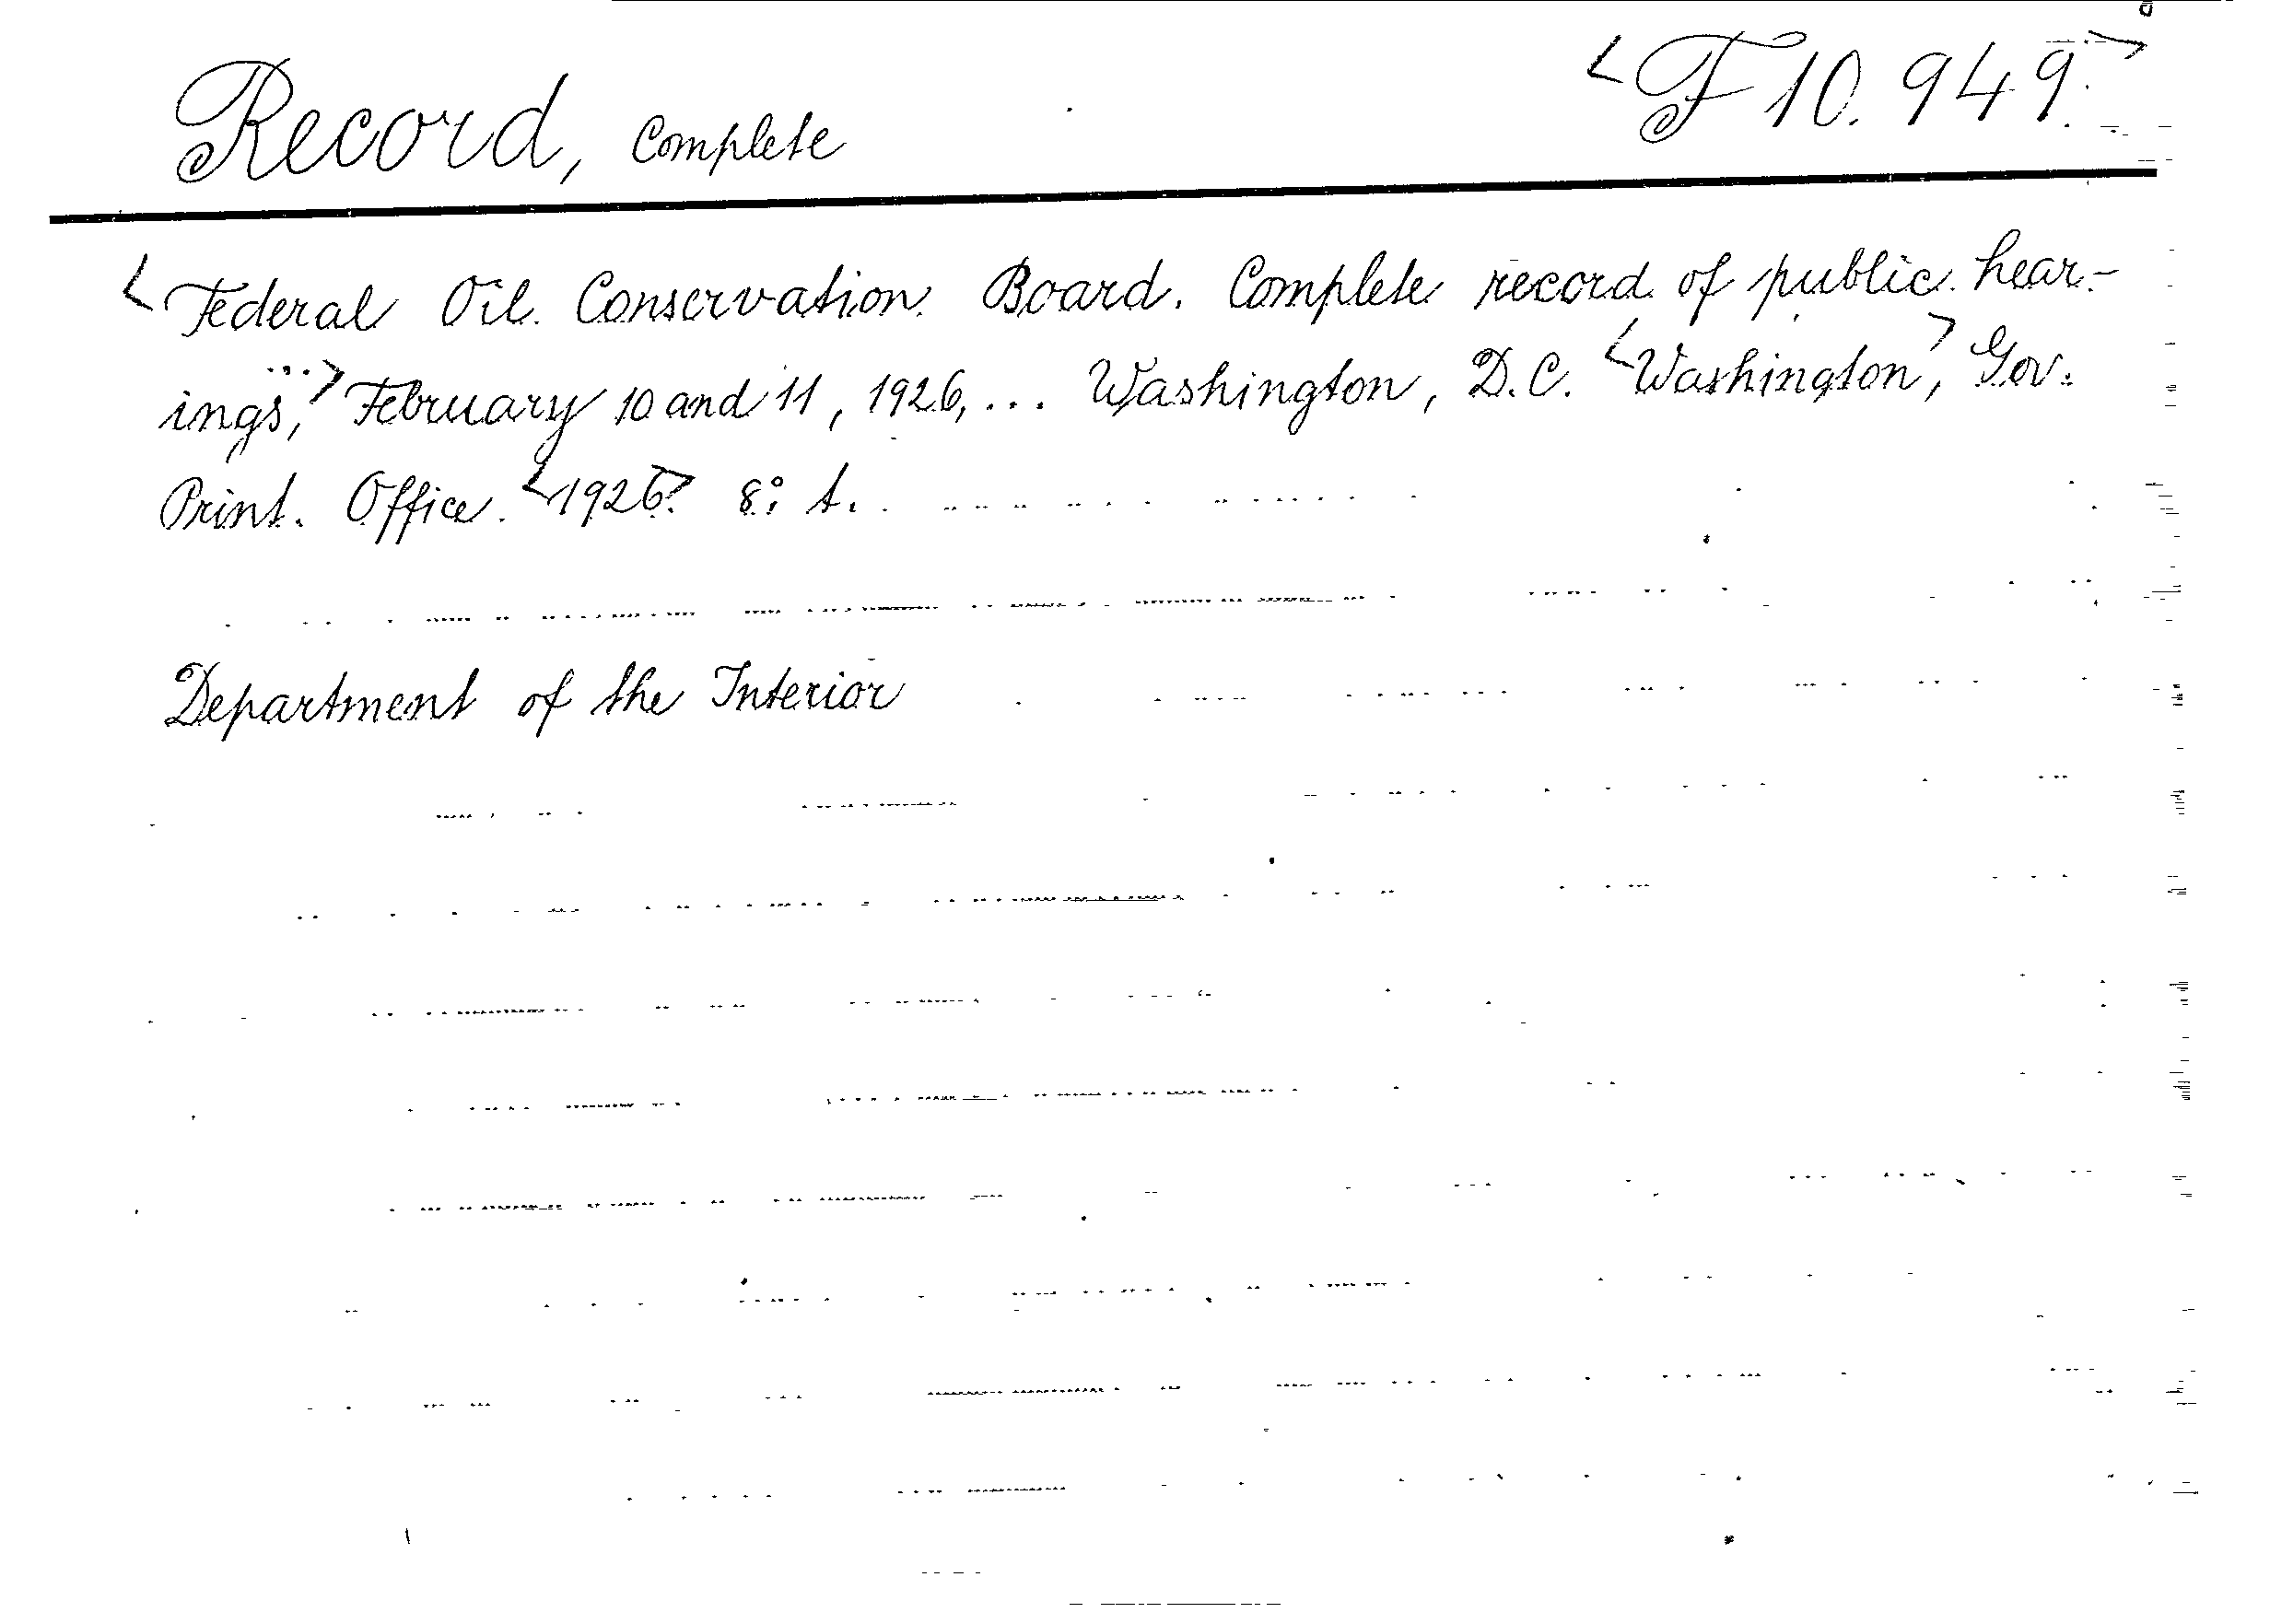 Record, Complete <F 10.949.>
<Federal Oil Conservation Board. Complete record of public hear-
ings, ...> February 10 and 11, 1926, ... Washington, D.C. <Washington,> Gov.
Print. Office. <1926> 8º; t.
Department of the Interior